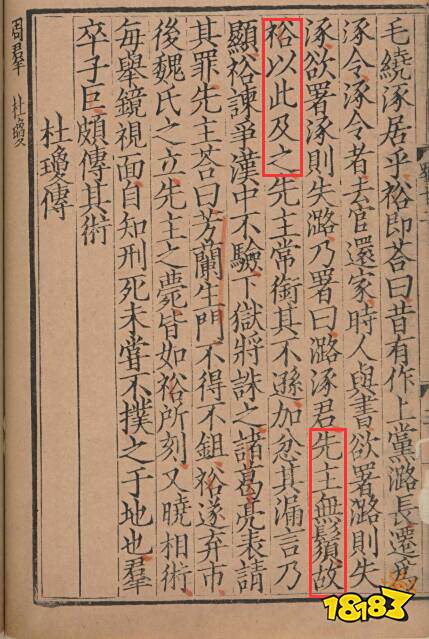 毛繞涿居乎裕即荅曰昔有作上黨潞長遷爲
涿令涿令者去官還家時人與書欲署潞則失
涿欲署涿則失潞乃署曰潞涿君先主無鬚故
裕以此及之先主常銜其不遜加忿其漏言乃
顯裕諫爭漢中不驗下獄將誅之諸葛亮表請
其罪先主荅曰芳蘭生門不得不鉏裕遂弃市
後魏氏之立先主之薨皆如裕所刻又曉相術
每舉鏡視面自知刑死未嘗不撲之于地也羣
卒子巨頗傳其術
杜瓊傳
周羣 杜瓊
18183